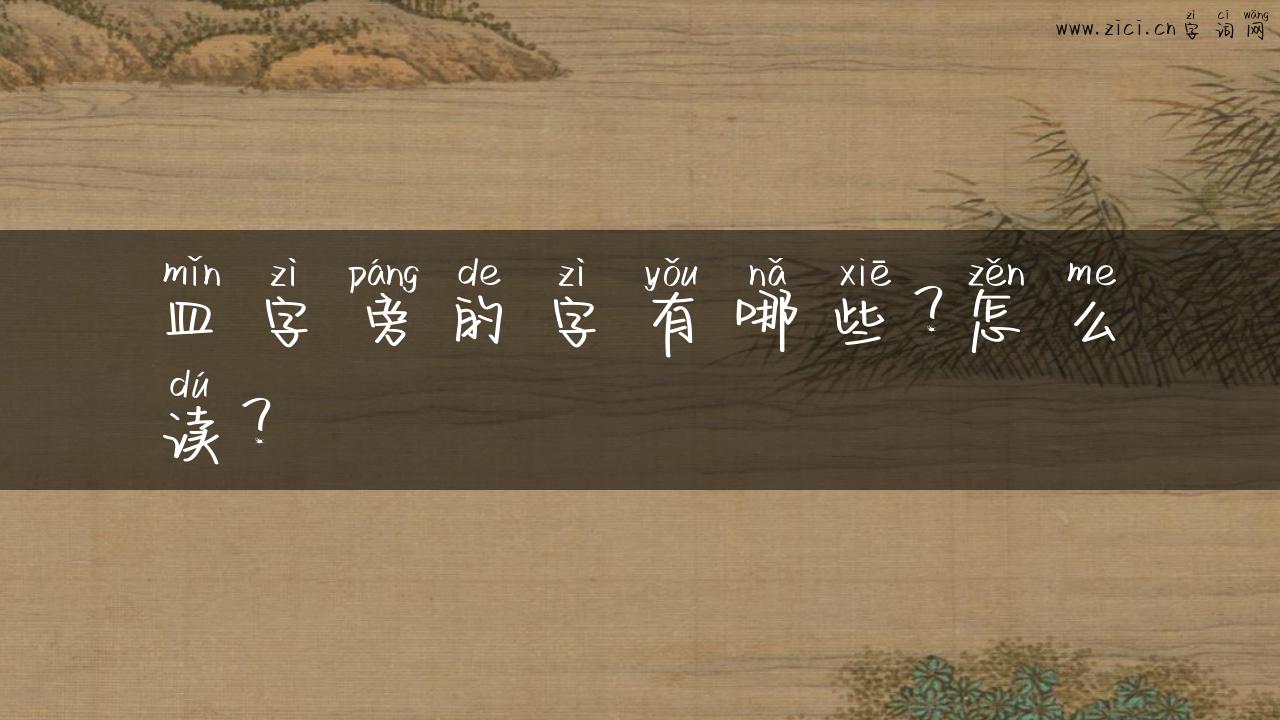 zì cí wǎng
www.zici.cn字词网
mǐn zì páng de zì yǒu nǎ xiē zěn me
皿字旁的字有哪些？怎么
dú
读？